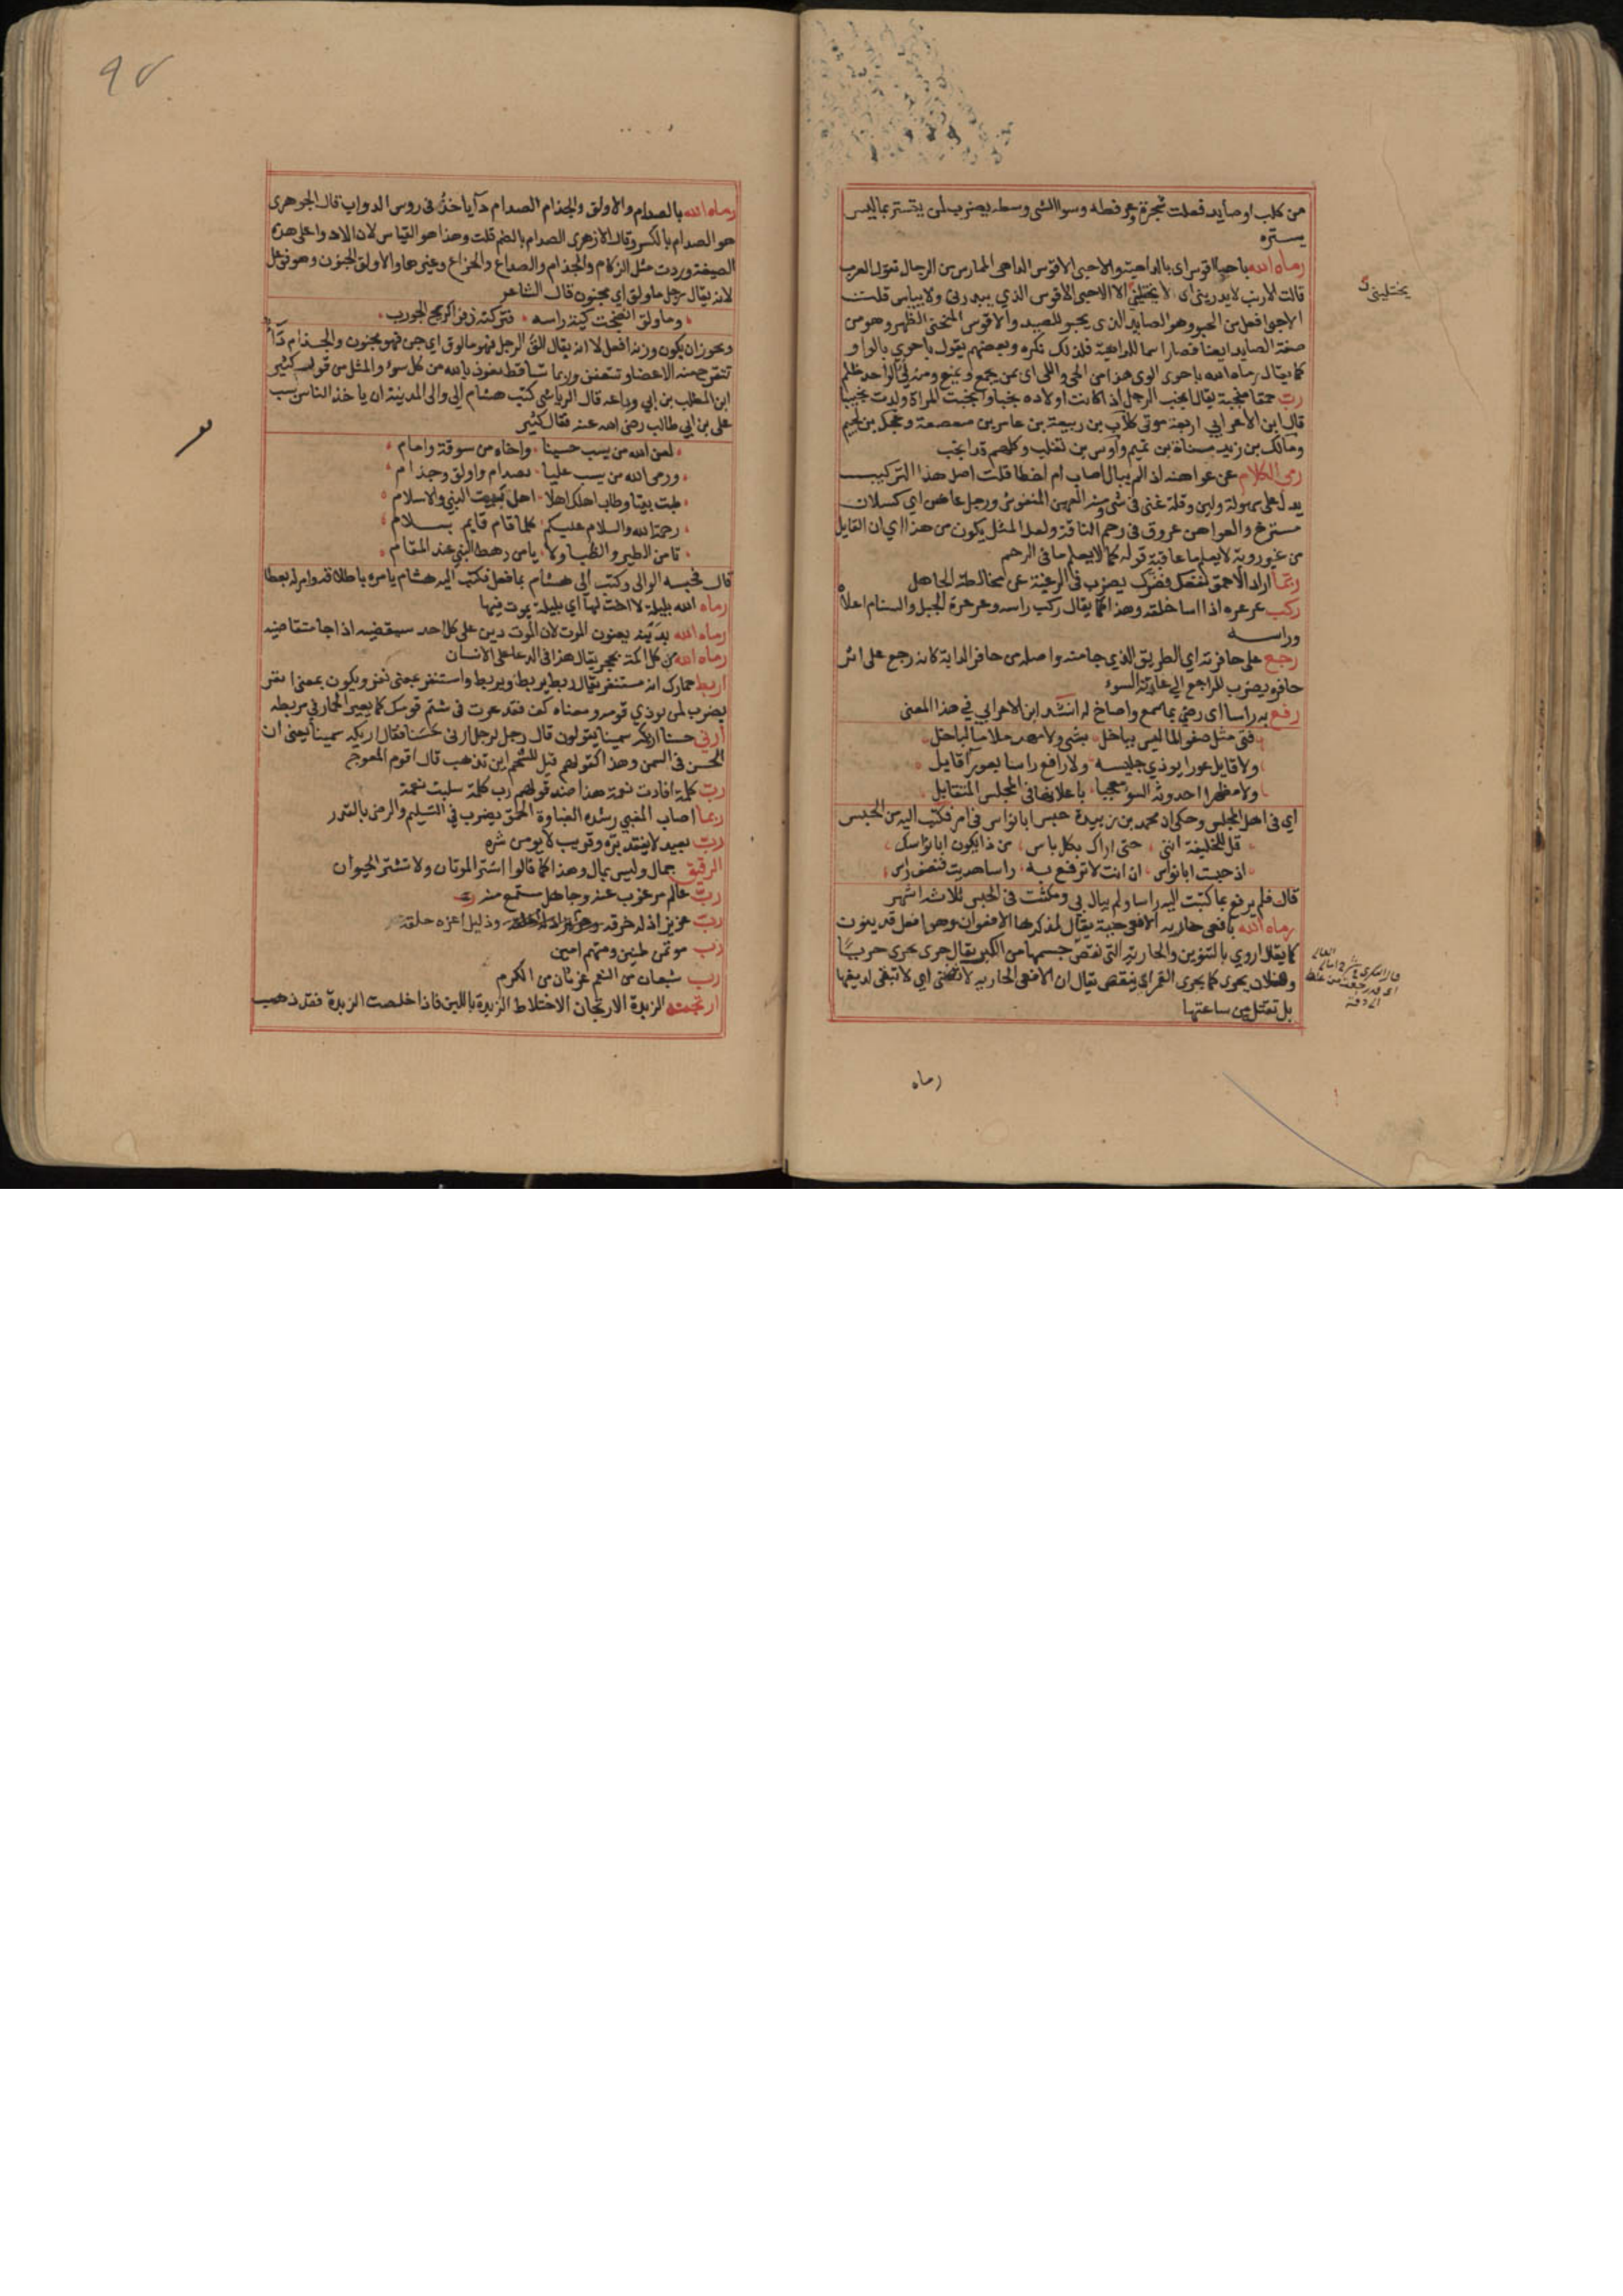 من كلب او صايد فعلت شجرة عرفطه وسوا الشي وسطه يضرب لمن يتستر بما ليس
يستره
رماه الله باحبا اقوس اي بالداهية والاحبى الاقوس الداهي الممارس من الرجال تقول العرب
قالت الارنب لا يدريني اي لا يختلني الا الاحبى الاقوس الذي يبدرني ولا يياس قلت
الاحبى افعل من الحبو وهو الصايد الذي يحبو للصيد والاقوس المنحني الظهر وهو من
صفة الصايد ايضا فصار اسما للداهية فلذلك نكره وبعضهم يقول باحوي بالواو
كما يقال رماه الله باحوى الوى هذا من الحي واللي اي بمن يجمع ويمنع ومنه لي الواحد ظلم
رب حمقا منجبة يقال انجب الرجل اذا كانت اولاده نجبا وانجبت المراة ولدت نجيبا
قال ابن الاعرابي اربعة موتى كلاب بن ربيعة بن عامر بن صعصعة وعجل بن لجيم
ومالك بن زيد مناة بن تميم واوس بن تغلب وكلهم قد انجب
رمى الكلام عن عواهنه اذا لم يبال اصاب ام اخطا قلت اصل هذا التركيب
يدل على سهولة ولين وقلة غنى في شي ومنه العهن المنفوش ورجل عاهن اي كسلان
مسترخ والعواهن عروق في رحم الناقة ولعل المثل يكون من هذا اي ان القايل
من غير روية لا يعلم ما عاقبة قوله كما لا يعلم ما في الرحم
ربما اراد الاحمق نفعك فضرك يضرب في الرغبة عن مخالطة الجاهل
ركب عرعره اذا اسا خلقه وهذا كما يقال ركب راسه وعرعرة الجبل والسنام اعلاه
وراسه
رجع على حافرته اي الطريق الذي جا منه واصله من حافر الدابة كانه رجع على اثر
حافره يضرب للراجع الى عادته السوء
رفع به راسا اي رضي بما سمع واصاخ له انشد ابن الاعرابي في هذا المعنى
فتى مثل صفو الماليس بباخل بشي ولا مهد ملاما لباخل
ولا قايل عورا يوذي جليسه ولا رافع راسا بعورا قايل
ولا مظهرا احدوثة السو معجبا باعلانها في المجلس المتقابل
اي في اهل المجلس وحكي ان محمد بن زبيدة حبس ابا نواس في امر فكتب اليه من الحبس
قل للخليفة انني حتى اراك بكل باس من ذا يكون ابا نواسك
اذ حبست ابا نواس ان انت لا ترفع به راسا هديت فنصف راس
قال فلم يرفع بما كتبت اليه راسا ولم يبال بي ومكثت في الحبس ثلاثة اشهر
رماه الله بافعى حارية الافعى حية يقال لمذكرها الافعوان وهو افعل قد ينون
كما يقال اروي بالتنوين والحارية التي نقص جسمها من الكبر يقال حرى يحري حريا
وفلان يحري كما يحري القمر اي ينقص يقال ان الافعى الحارية لا تطني اي لا تبقي لديغها
بل تقتل من ساعتها
رماه
يختليني
رماه الله بالصدام والاولق والجذام الصدام دآ ياخذ في روس الدواب قال الجوهري
هو الصدام بالكسر وقال الازهري الصدام بالضم قلت وهذا هو القياس لان الادوا على هذه
الصيغة وردت مثل الزكام والجذام والصداع والخزاع وغيرها والاولق الجنون وهو فوعل
لانه يقال رجل ماولق اي مجنون قال الشاعر
وماولق انضجت كية راسه فتركته ذفرا كريح الجورب
ويجوز ان يكون وزنه افعل لانه يقال الق الرجل فهو مالوق اي جن فهو مجنون والجذام دآ
تتقرح منه الاعضا وتتعفن وربما تساقط نعوذ بالله من كل سوء والمثل من قول كثير
ابن المطلب بن ابي وداعه قال الرياشي كتب هشام الى والى المدينة ان ياخذ الناس بسب
على بن ابي طالب رضي الله عنه فقال كثير
لعن الله من يسب حسينا واخاه من سوقة وامام
ورمى الله من يسب عليا بصدام واولق وجذام
طبت بيتا وطاب اهلك اهلا اهل بيت النبي والاسلام
رحمة الله والسلام عليكم كلما قام قايم بسلام
تامن الطير والظبا ولا يامن رهط النبي عند المقام
قال فحبسه الوالى وكتب الى هشام بما فعل فكتب اليه هشام يامره باطلاقه وامر له بعطا
رماه الله بليلة لا اخت لها اي بليلة يموت فيها
رماه الله بدينه يعنون الموت لان الموت دين على كل احد سيقضيه اذا جا متقاضيه
رماه الله من كل اكمة بحجر يقال هذا في الدعا على الانسان
اربط حمارك انه مستنفر يقال ربط يربط ويربط واستنفر بمعنى نفر ويكون بمعنى انفر
يضرب لمن يوذي قومه ومعناه كف فقد عرت في شتم قومك كما يعير الحمار في مربطه
ارني حسنا اريكه سمينا يقولون قال رجل لرجل ارني حسنا فقال اريكه سمينا يعني ان
الحسن في السمن وهذا كقولهم قيل للشحم اين تذهب قال اقوم المعوج
رب كلمة افادت نعمة هذا ضد قولهم رب كلمة سلبت نعمة
ربما اصاب الغبي رشده الغباوة الحمق يضرب في التسليم والرضى بالقدر
رب بعيد لا يفتقد بره وقريب لا يومن شره
الرقيق جمال وليس بمال وهذا كما قالوا اشتر الموتان ولا تشتر الحيوان
رب عالم مرغوب عنه وجاهل مستمع منه
رب عزيز اذله خرقه وذليل اعزه خلقه
رب موتمن ظنين ومتهم امين
رب شبعان من النعم غرثان من الكرم
ارتجنت الزبدة الارتجان الاختلاط الزبدة باللبن فاذا خلصت الزبدة فقد ذهب